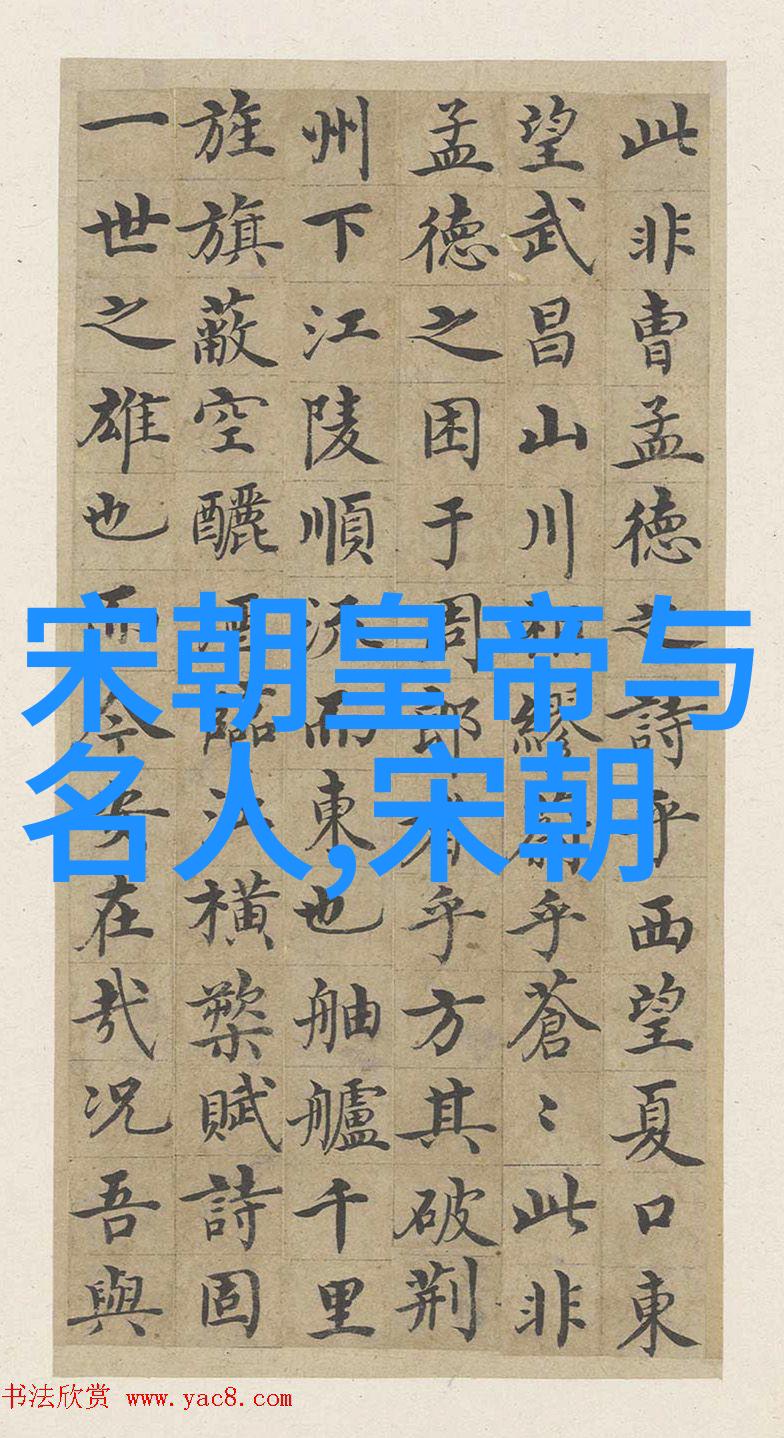 宋朝皇帝与
名人,宋朝
此非曺孟德之詩乎西望夏口東
望武昌山川相繆乎蒼〻此非
孟德之困于周郎者乎方其破荊
州下江陵順流而東也舳艫千里
旌旗蔽空釃酒臨江橫槊賦詩固
一世之雄也而今安在哉况吾與
书法欣赏 www.yac8.com